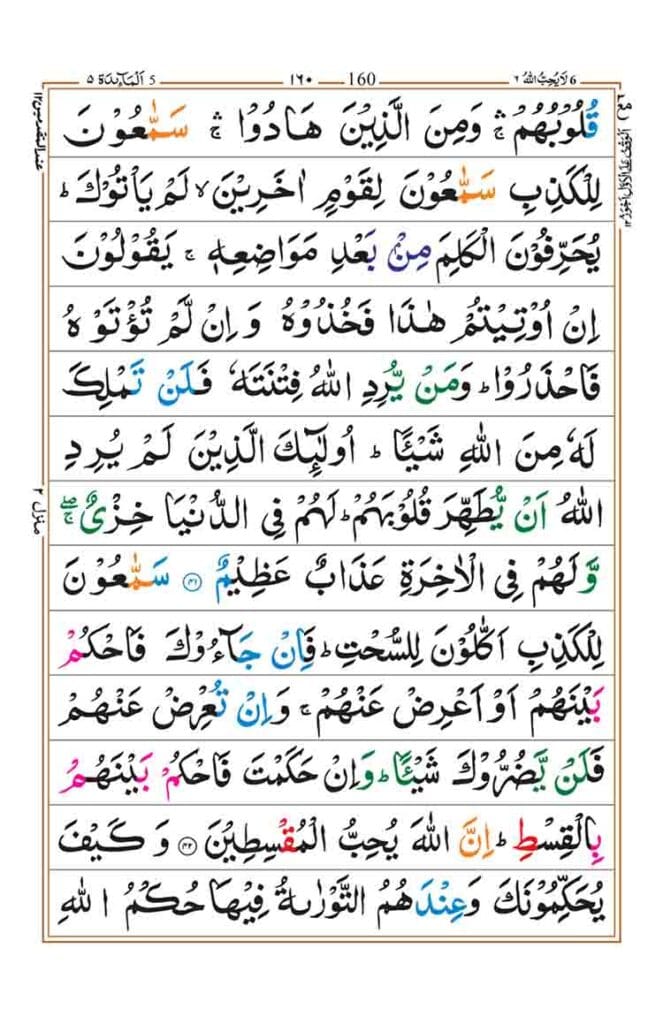 6 لَا يُحِبُّ اللّٰهُ ٦ 160 ١٦٠ 5 اَلْمَآئِدَة ٥
قُلُوْبُهُمْ ۛۚ وَمِنَ الَّذِيْنَ هَادُوْا ۛۚ سَمّٰعُوْنَ
لِلْكَذِبِ سَمّٰعُوْنَ لِقَوْمٍ اٰخَرِيْنَ ۙ لَمْ يَاْتُوْكَ ؕ
يُحَرِّفُوْنَ الْكَلِمَ مِنْۢ بَعْدِ مَوَاضِعِهٖ ۚ يَقُوْلُوْنَ
اِنْ اُوْتِيْتُمْ هٰذَا فَخُذُوْهُ وَاِنْ لَّمْ تُؤْتَوْهُ
فَاحْذَرُوْا ؕ وَمَنْ يُّرِدِ اللّٰهُ فِتْنَتَهٗ فَلَنْ تَمْلِكَ
لَهٗ مِنَ اللّٰهِ شَيْـًٔا ؕ اُولٰٓئِكَ الَّذِيْنَ لَمْ يُرِدِ
اللّٰهُ اَنْ يُّطَهِّرَ قُلُوْبَهُمْ ؕ لَهُمْ فِي الدُّنْيَا خِزْيٌ ۖۚ
وَّلَهُمْ فِي الْاٰخِرَةِ عَذَابٌ عَظِيْمٌ ﴿٤١﴾ سَمّٰعُوْنَ
لِلْكَذِبِ اَكّٰلُوْنَ لِلسُّحْتِ ؕ فَاِنْ جَآءُوْكَ فَاحْكُمْ
بَيْنَهُمْ اَوْ اَعْرِضْ عَنْهُمْ ۚ وَاِنْ تُعْرِضْ عَنْهُمْ
فَلَنْ يَّضُرُّوْكَ شَيْـًٔا ؕ وَاِنْ حَكَمْتَ فَاحْكُمْ بَيْنَهُمْ
بِالْقِسْطِ ؕ اِنَّ اللّٰهَ يُحِبُّ الْمُقْسِطِيْنَ ﴿٤٢﴾ وَكَيْفَ
يُحَكِّمُوْنَكَ وَعِنْدَهُمُ التَّوْرٰىةُ فِيْهَا حُكْمُ اللّٰهِ
منزل ٢